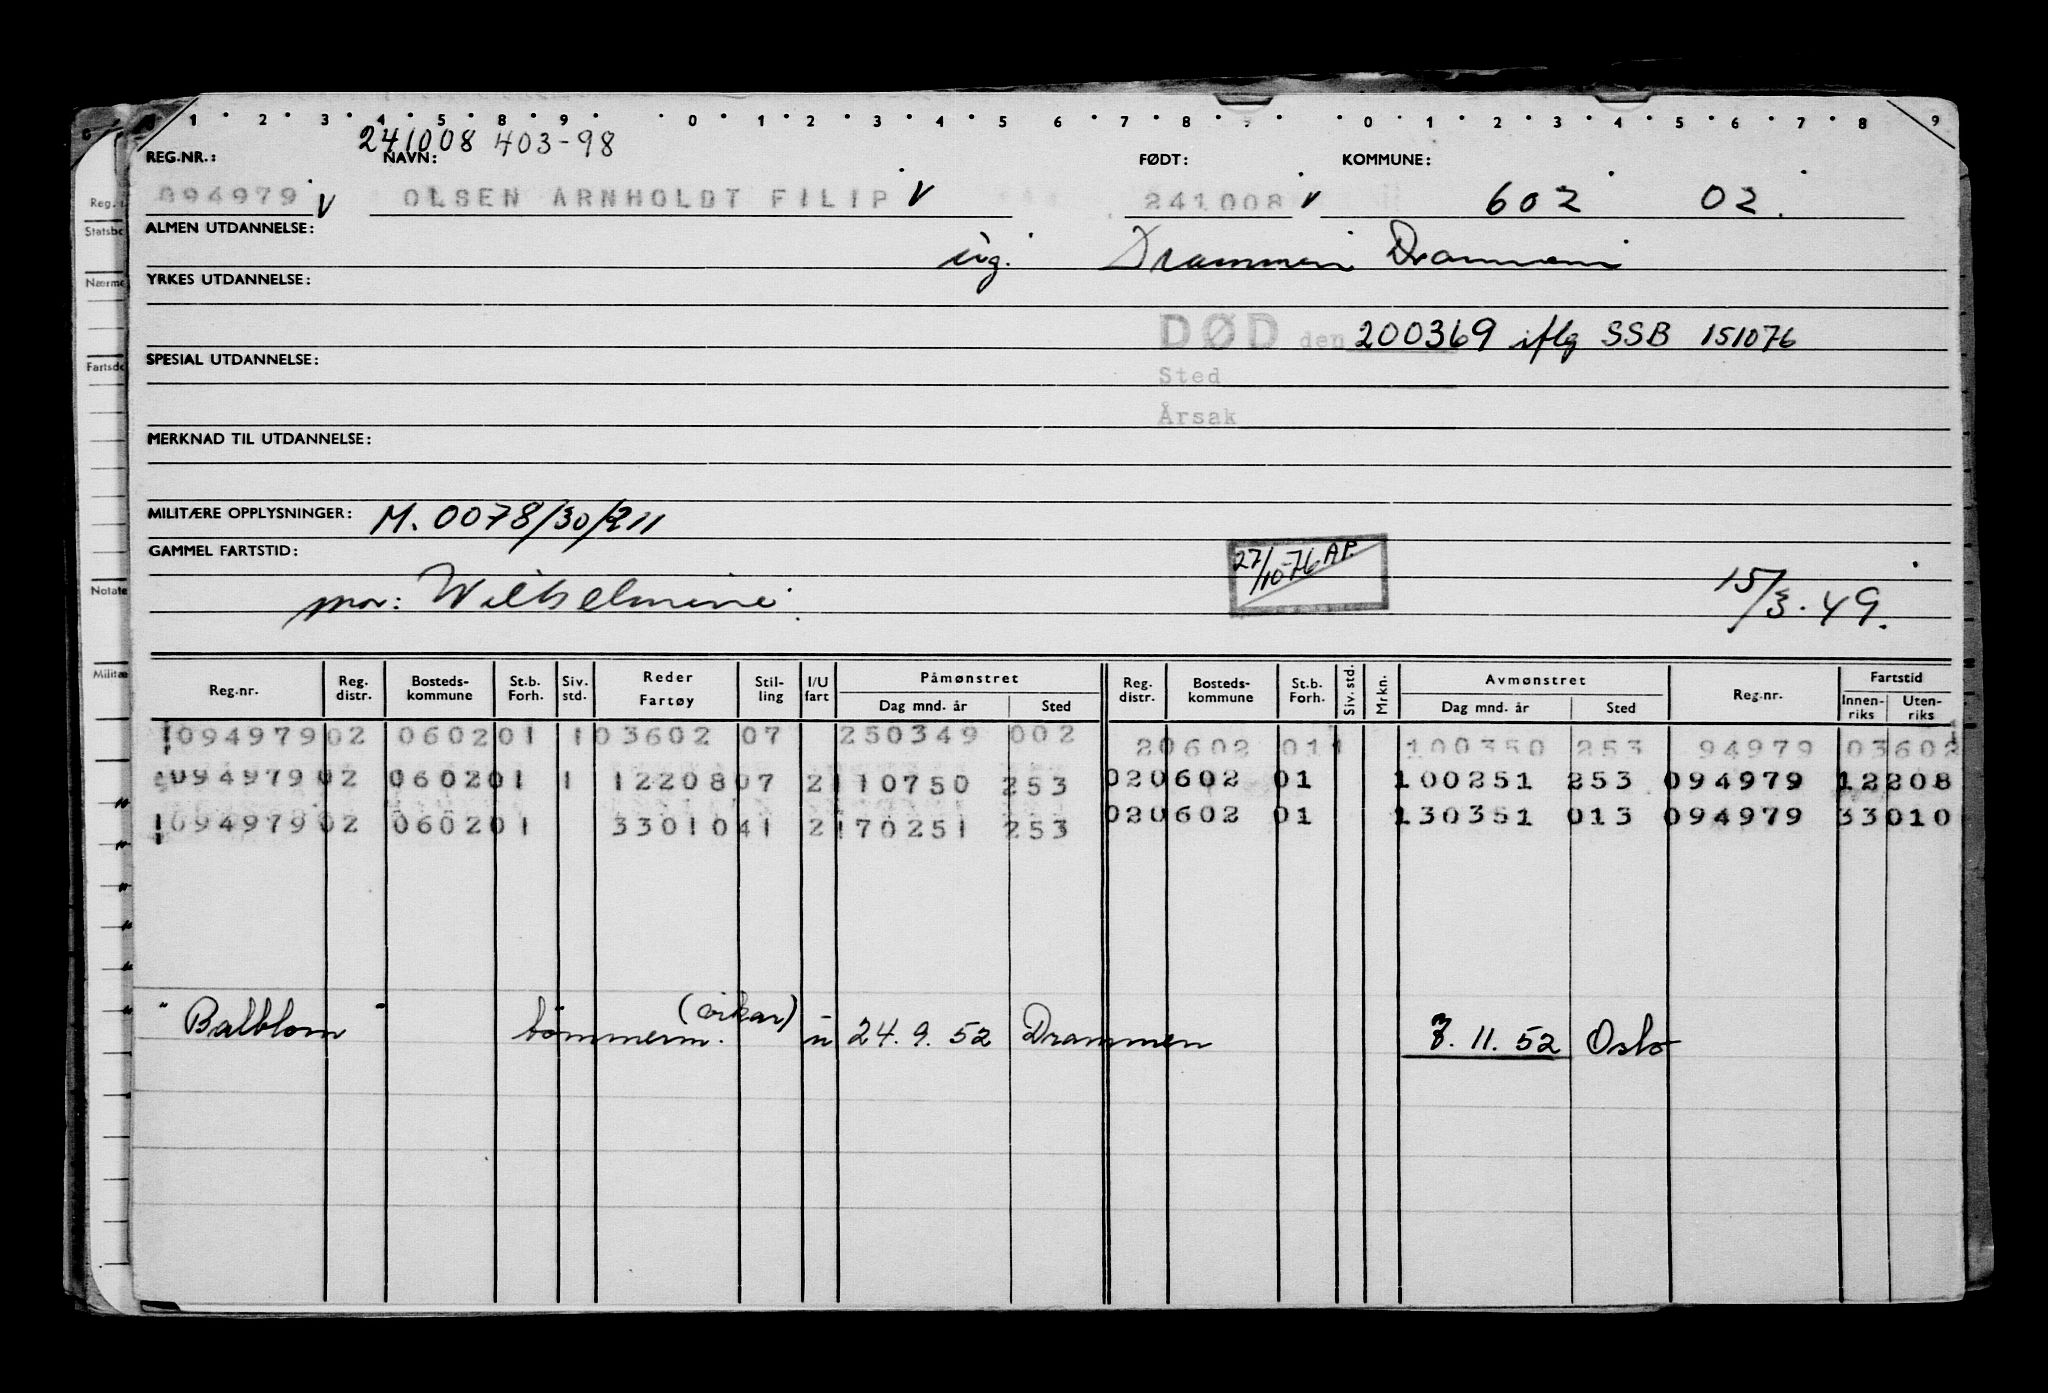 1 2 3 4 5 8 9 0 1 2 3 4 5 6 7 8 0 1 2 3 4 5 6 7 8 9
241008 403-98
REG.NR.: NAVN: FØDT: KOMMUNE:
094979 V OLSEN ARNHOLDT FILIP V 241008 V 602 02.
ALMEN UTDANNELSE:
ug. Drammen Drammen
YRKES UTDANNELSE:
DØD den 200369 iflg SSB 151076
SPESIAL UTDANNELSE:
Sted
Årsak
MERKNAD TIL UTDANNELSE:
MILITÆRE OPPLYSNINGER: M. 0078/30/211
GAMMEL FARTSTID:
27/10-76 AP.
mor: Wilhelmine.
15/3.49.
Reg.nr. Reg. distr. Bosteds-kommune St.b. Forh. Siv. std. Reder Fartøy Stil-ling I/U fart Påmønstret Dag mnd. år Sted Reg. distr. Bosteds-kommune St.b. Forh. Siv. std. Mrkn. Avmønstret Dag mnd. år Sted Reg.nr. Fartstid Innen-riks Uten-riks
094979 02 0602 01 1 03602 07 250349 002 20602 011 100350 253 94979 03602
094979 02 0602 01 1 12208 07 2 110750 253 020602 01 100251 253 094979 12208
094979 02 0602 01 33010 41 2 170251 253 020602 01 130351 013 094979 33010
"Balblom" tömmerm. (vikar) u 24.9.52 Drammen 7.11.52 Oslo